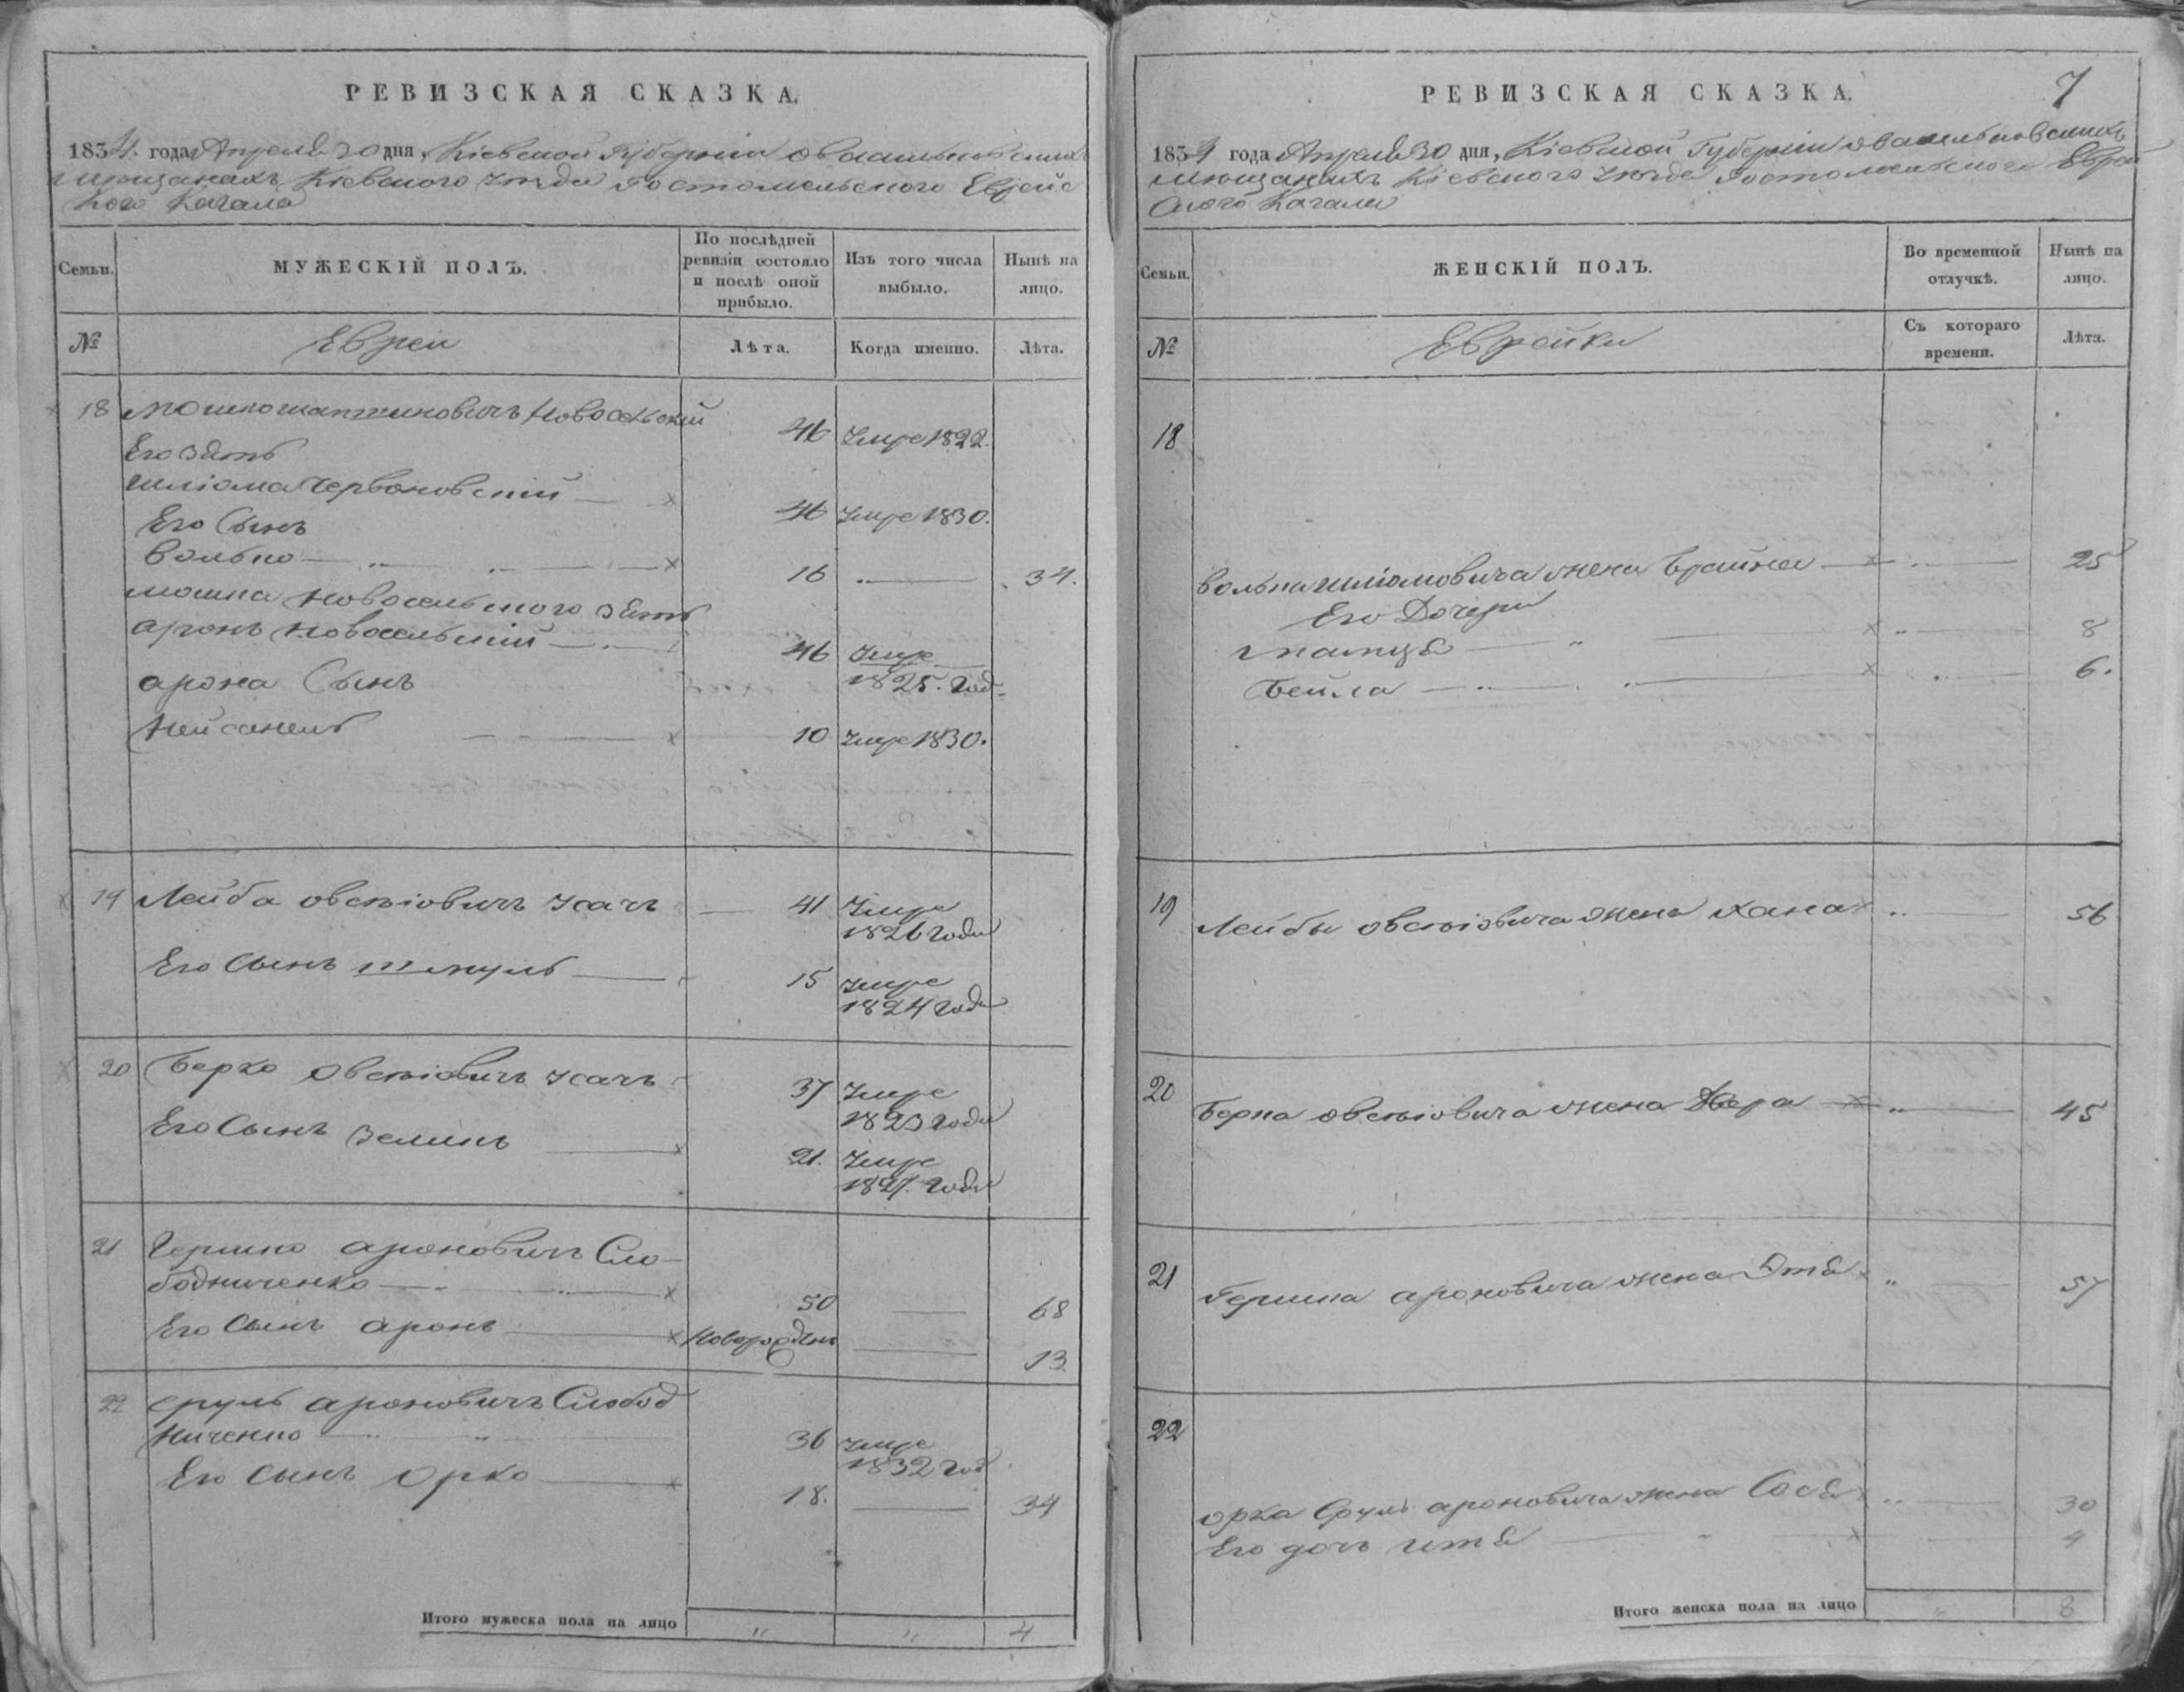 РЕВИЗСКАЯ СКАЗКА.
1834. года Апреля 30 дня, Кіевской Губернии о васильковских
мещанахъ Кіевского уезда Гостомельского Еврейс
кого Кагала
Семьи.
МУЖЕСКІЙ ПОЛЪ.
По послѣдней ревизіи состояло и послѣ оной прибыло.
Изъ того числа выбыло.
Нынѣ на лицо.
№
Евреи
Лѣта.
Когда именно.
Лѣта.
18 Мошко Новосельский 46 Умре 1822.
Его Зять
Шліома Червоновский 46 Умре 1830.
Его Сынъ
Волько 16 34.
Мошка Новосельского Зять
Аронъ Новосельский 46 Умре
1825. год.
Арона Сынъ
Нейсанель 10 Умре 1830.
19 Лейба Овсѣіовичъ Усачъ 41 Умре
1826 года
Его Сынъ Шмуль 15 Умре
1824 года
20 Берко Овсѣіовичъ Усачъ 37 Умре
1823 года
Его Сынъ Зеликъ 21. Умре
1827. года
21 Гершко Ароновичъ Сло-
бодниченко 50 68
Его Сынъ Аронъ Новорожден 13
22 Сруль Ароновичъ Слобод
ниченко 36 Умре
1832 год
Его Сынъ Орко 18. 34
Итого мужеска пола на лицо " " 4
7
РЕВИЗСКАЯ СКАЗКА.
1834 года Апреля 30 дня, Кіевской Губернии о васильковскихъ
мещанахъ Кіевского уезда Гостомельского Еврей
ского Кагала
Семьи.
ЖЕНСКІЙ ПОЛЪ.
Во временной отлучкѣ.
Нынѣ на лицо.
№
Еврейки
Съ котораго времени.
Лѣта.
18
Волька Шліомовича жена Брайна 25
Его Дочери
8
Бейла 6.
19 Лейбы Овсѣіовича жена Хана 56
20 Берка Овсѣіовича жена Двера 45
21 Гершка Ароновича жена Этя 57
22
Орка Сруль Ароновича жена Сося 30
Его дочь Итя 4
Итого женска пола на лицо " 8